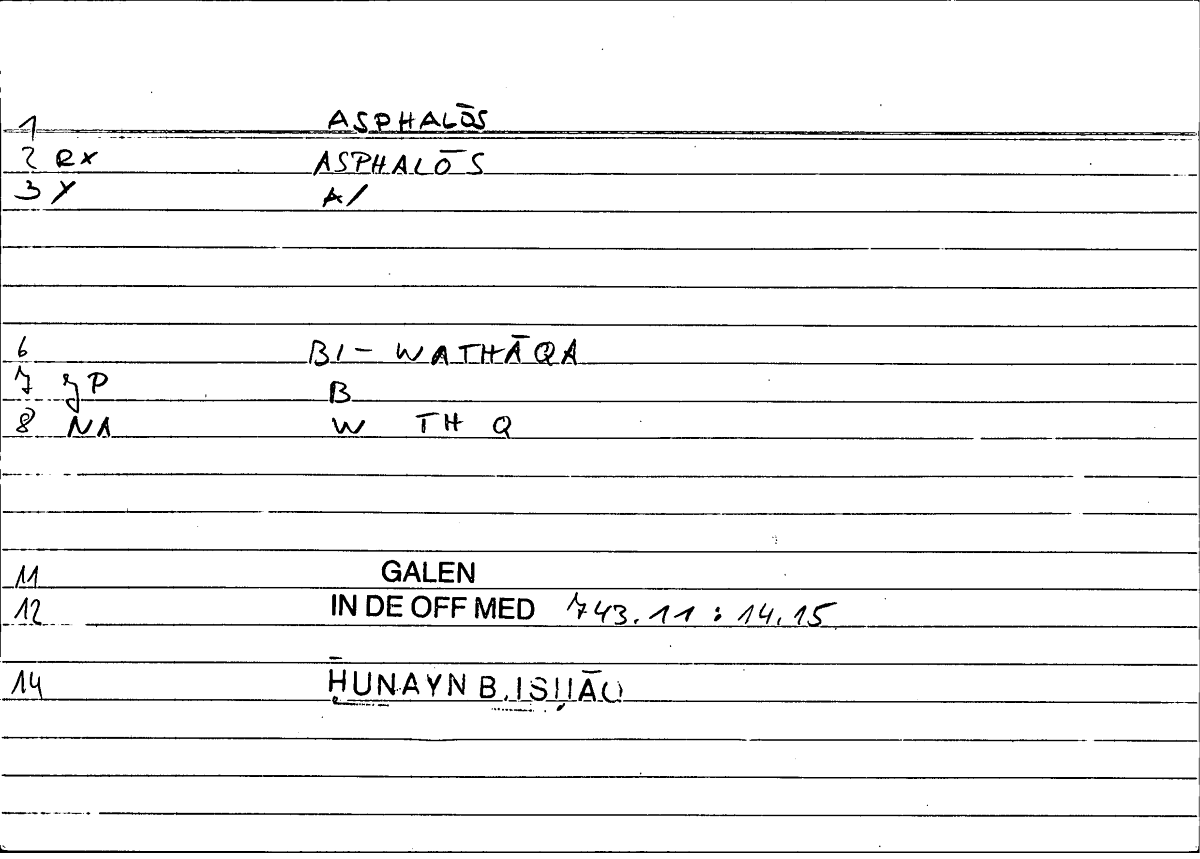 1 ASPHALŌS
2 RX ASPHALŌS
3 Y A/
6 BI - WATHĀQA
7 JP B
8 NA W TH Q
11 GALEN
12 IN DE OFF MED 743.11 : 14.15
14 ḤUNAYN B. ISḤĀQ